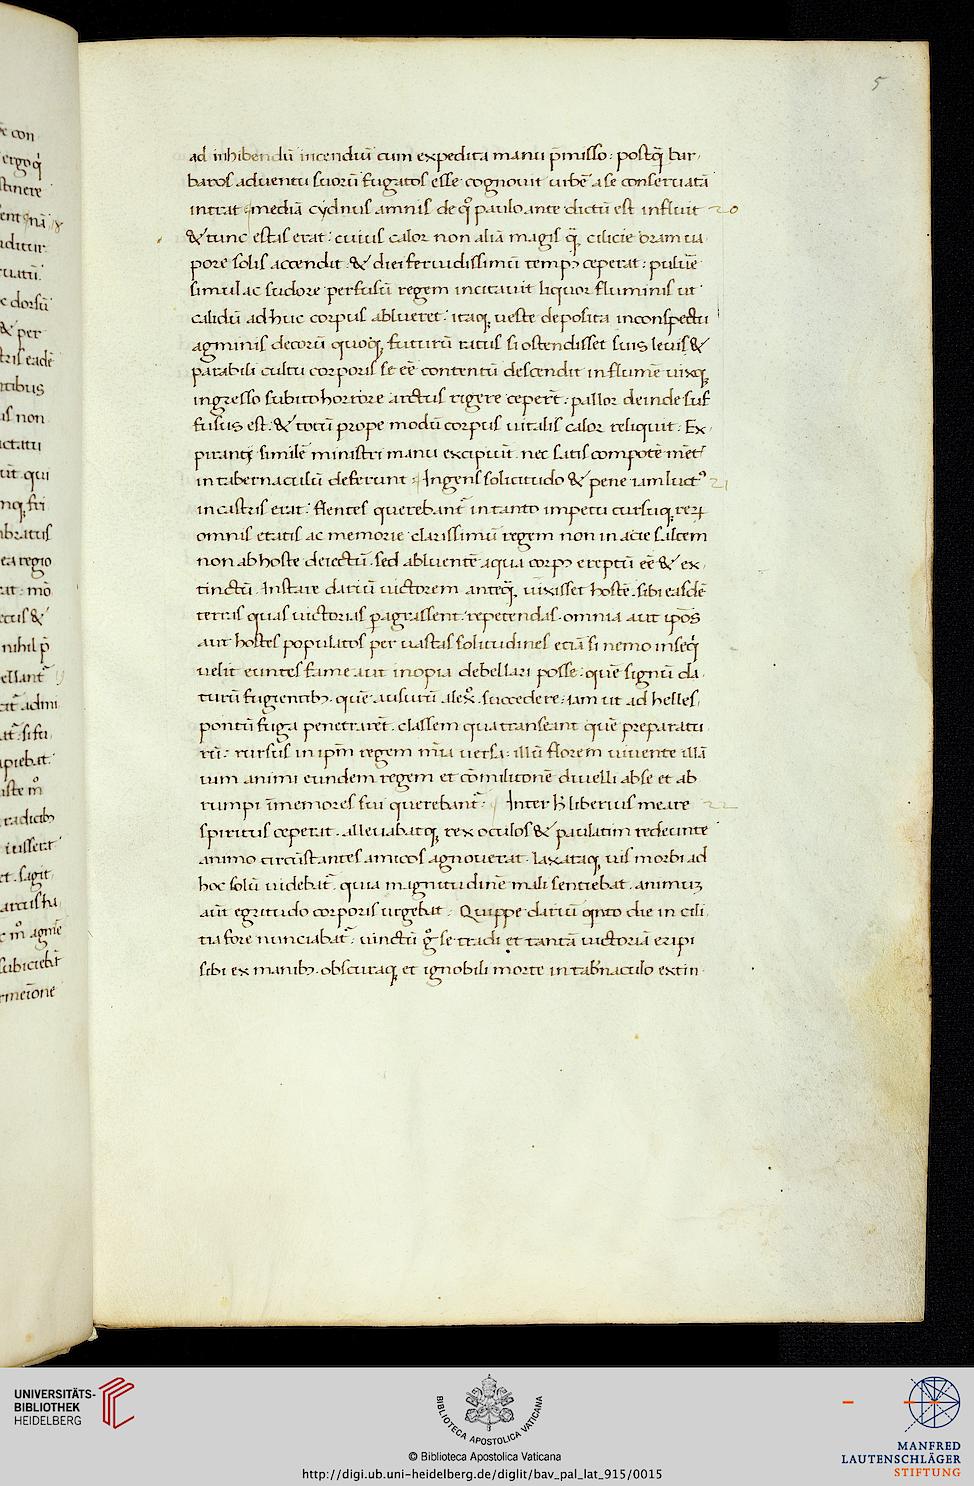 5
ad inhibendū incendiū cum expedita manu p̄misso: postq̄ bar
baros aduentu suorū fugatos esse cognouit urbē a se conseruatā
intrat. mediā cydnus amnis de q̊ paulo ante dictū est influit 20
& tunc estas erat: cuius calor non aliā magis q̄ cilicie oram ua
pore solis accendit. & diei feruidissimū tempꝰ ceperat: puluē
simul ac sudore perfusū regem inuitauit liquor fluminis ut
calidū adhuc corpus ablueret: itaq; ueste deposita inconspectu
agminis decorū quoq; futurū ratus si ostendisset suis leuis &
parabili cultu corporis se eē contentū descendit in flumē uixq;
ingresso subito horrore artus rigere ceperēt: pallor deinde suf
fusus est. & totū prope modū corpus uitalis calor reliquit: Ex
piranti similē ministri manu excipiūt. nec satis compotē mēt
in tabernaculū deferunt: Ingens solicitudo & pene iam luctꝰ 21
in castris erat: flentes querebant in tanto impetu cursuq; reꝝ
omnis etatis ac memorie clarissimū regem non in acie saltem
non ab hoste deiectū. sed abluentē aqua corpꝰ ereptū eē & ex
tinctū. Instare dariū uictorem anteq̄ uidisset hostē. sibi easdē
terras quas uictorias ꝑagrassent repetendas. omnia aut ip̄os
aut hostes populatos per uastas solitudines etiā si nemo inseq̇
uelit euntes fame aut inopia debellari posse. quē signū da
turū fugientibꝫ. quē ausurū alex̄. succedere: iam ut ad helles
pontū fuga penetrarēt. classem qua transeant quē preparatu
rū: rursus in ip̄m regem mīa uersa: illū florem iuuente illā
uim animi eundem regem et cōmilitonē diuelli abse et ab
rumpi īmemores sui querebant: Inter h̄ liberius meare 22
spiritus ceperat. alleuabatq; rex oculos & paulatim redeunte
animo circūstantes amicos agnouerat. laxataq; uis morbi ad
hoc solū uidebat. quia magnitudinē mali sentiebat. animuꝫ
aūt egritudo corporis urgebat: Quippe dariū q̇nto die in cili
tia fore nunciabat: uinctū g̊ se tradi et tantā uictoriā eripi
sibi ex manibꝫ. obscuraq; et ignobili morte in tab̄naculo extin
UNIVERSITÄTS-
BIBLIOTHEK
HEIDELBERG
BIBLIOTECA APOSTOLICA VATICANA
© Biblioteca Apostolica Vaticana
http://digi.ub.uni-heidelberg.de/diglit/bav_pal_lat_915/0015
MANFRED
LAUTENSCHLÄGER
STIFTUNG